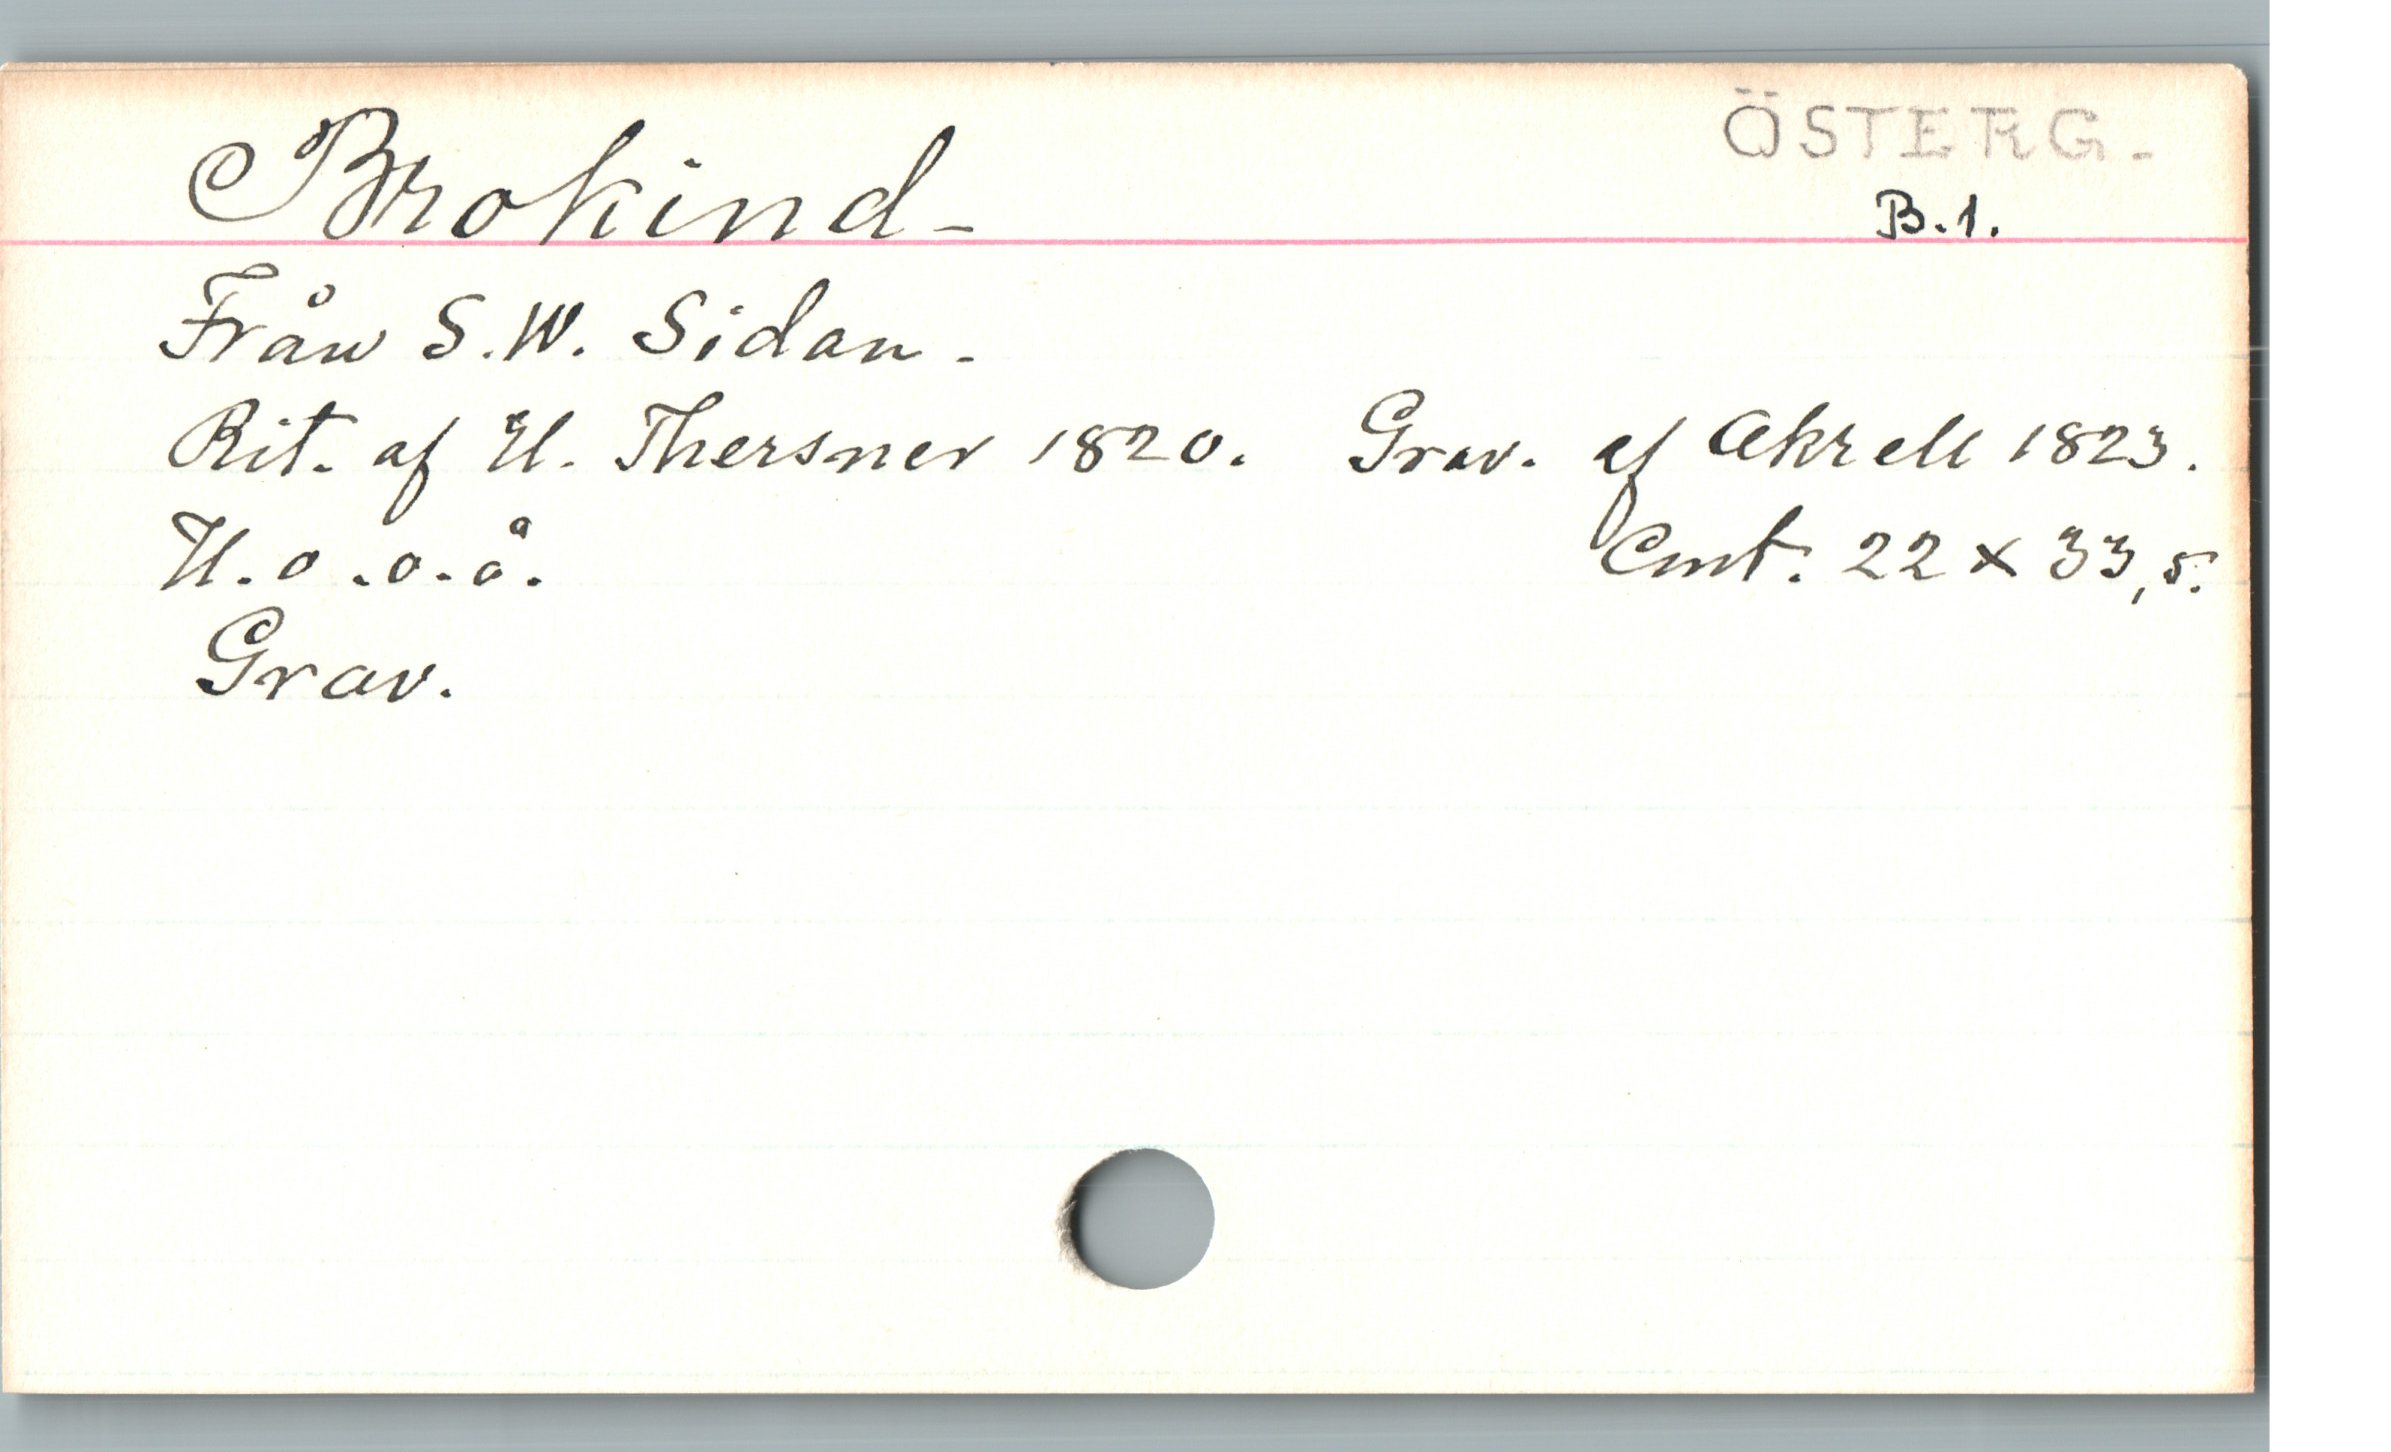 ÖSTERG.
Brokind.
B.1.
Från S.W. Sidan.
Rit. af U. Thersner 1820. Grav. af Akrell 1823.
U.o.o.å. Cmt. 22 x 33,5.
Grav.